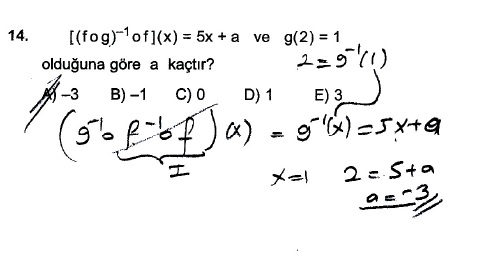 14. [(fog)⁻¹of](x) = 5x + a ve g(2) = 1
olduğuna göre a kaçtır? 2 = g⁻¹(1)
A) –3 B) –1 C) 0 D) 1 E) 3
(g⁻¹o f⁻¹o f)(x) = g⁻¹(x) = 5x+a
I
x=1 2 = 5+a
a = -3